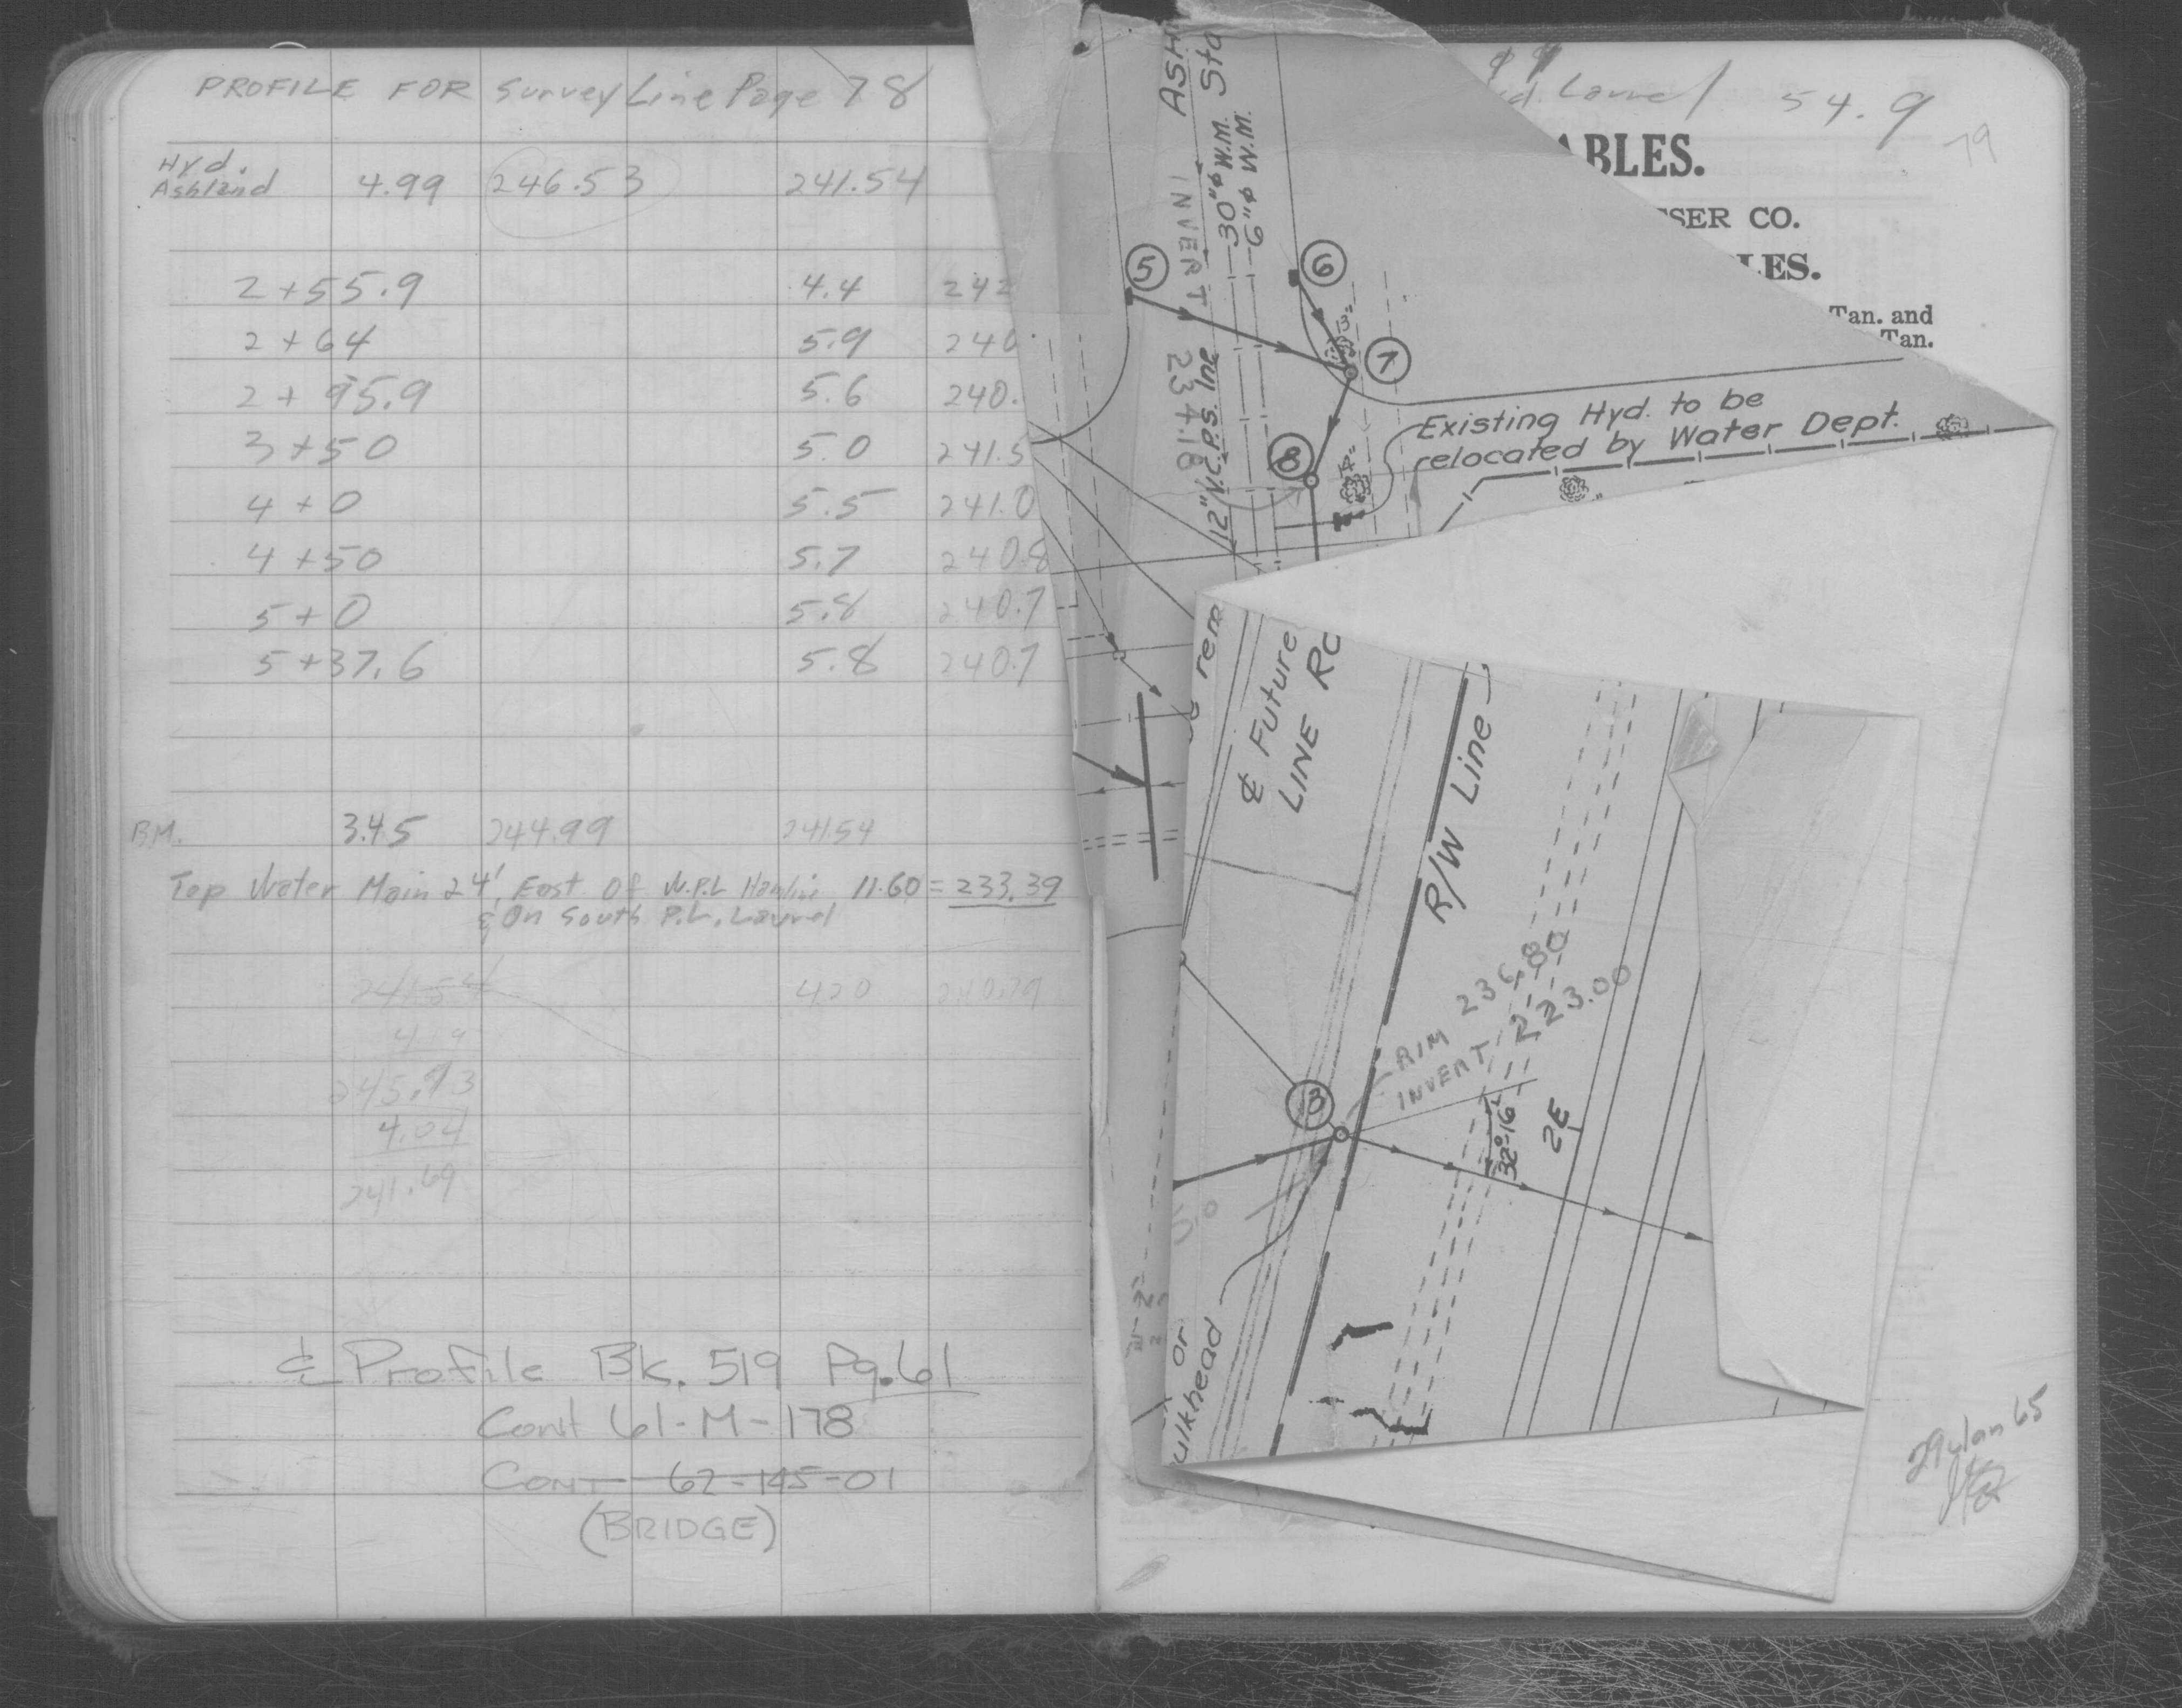 PROFILE FOR Survey Line Page 78
Hyd.
Ashland 4.99 246.53 241.54
2+55.9 4.4 242
2+64 5.9 240.
2+95.9 5.6 240.
3+50 5.0 241.5
4+0 5.5 241.0
4+50 5.7 240.8
5+0 5.8 240.7
5+37.6 5.8 240.7
B.M. 3.45 244.99 241.54
Top Water Main 24' East Of W.P.L Hamline 11.60 = 233.39
& On South P.L. Laurel
241.54 4.20 240.79
4.19
245.73
4.04
241.69
℄ Profile Bk. 519 Pg. 61
Cont 61-M-178
Cont 62-145-01
(BRIDGE)
Laurel 54.9
79
ABLES.
SSER CO.
LES.
Tan. and
Tan.
ASH
Sta
INVERT 234.18
30"ϕ W.M.
6"ϕ W.M.
12" V.C.P.S. Inc
5
6
7
8
Existing Hyd. to be
relocated by Water Dept.
rem
℄ Future
LINE RO
R/W Line
RIM 236.80
INVERT 223.00
3
32°-16'
2E
or
ulkhead
29 Jan 65